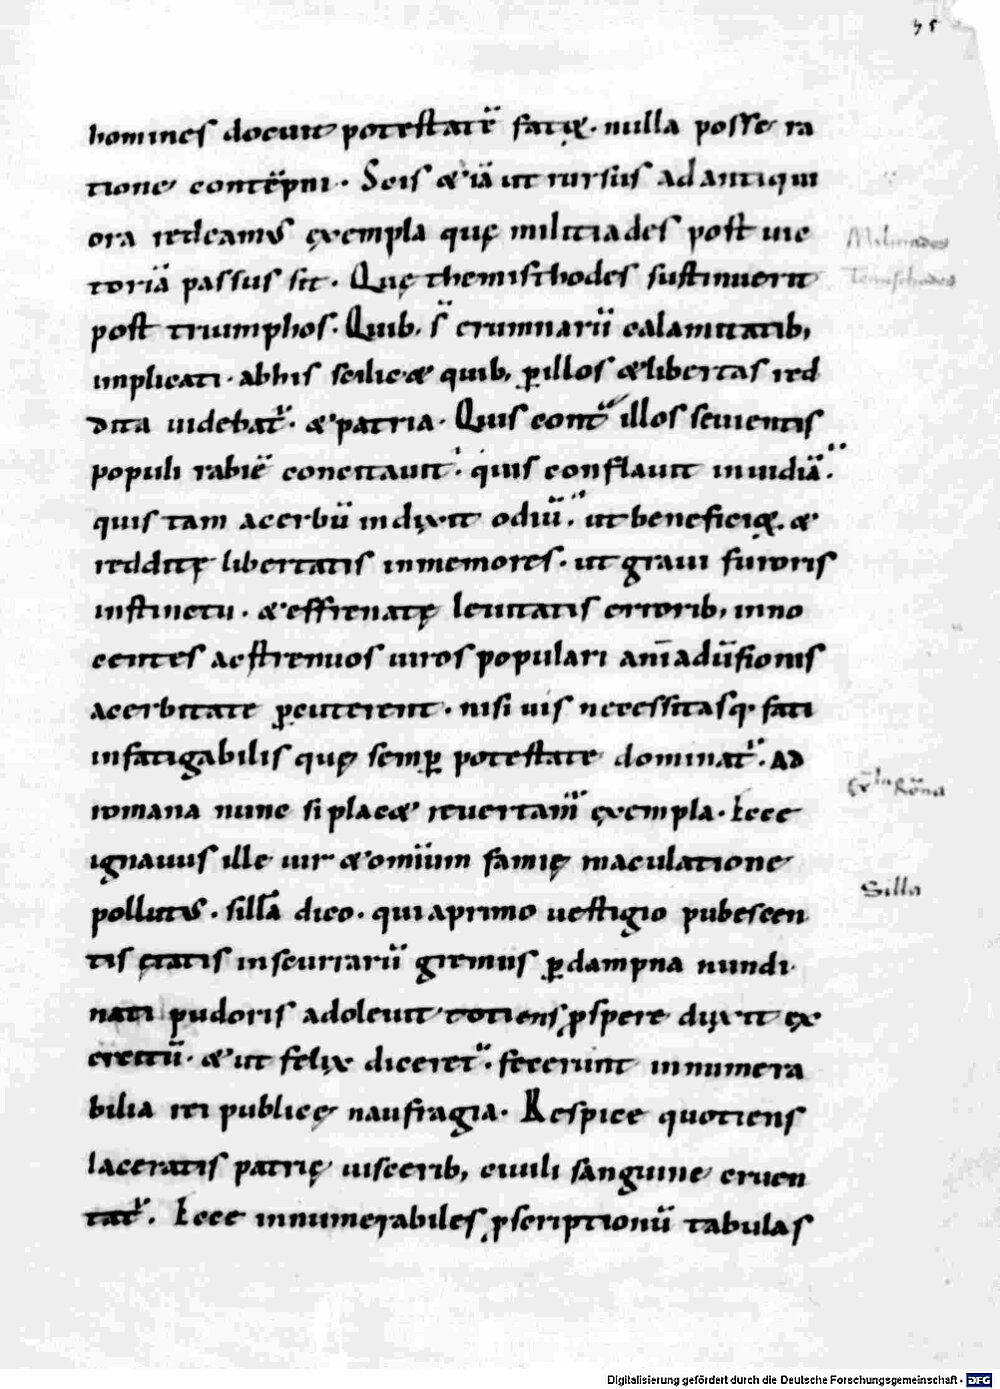 45
homines docuit potestatē fatiq;. nulla posse ra
tione contēpni. Scis & iā ut rursus ad antiqui
ora redeamus ęxempla quę miltiades post uic
Milciades
toriā passus sit. Quę themisthodes sustinuerit
Temisthodes
post triumphos. Quib. s̄ erumnarū calamitatib;
implicati. abhis scilic& quib; ꝑillos &libertas red
dita uidebat᷑. &patria. Quis cont᷑ illos seuientis
populi rabiē concitauit. quis conflauit inuidiā.
quis tam acerbū indixit odiū. ut beneficiiq;. &
redditę libertatis inmemores. ut graui furoris
instinctu. & effrenatę leuitatis errorib; inno
centes acstrenuos uiros populari anīaduersionis
acerbitate ꝑcuterent. nisi uis necessitasq. fati
infatigabilis quę semꝑ potestate dominat᷑. AD
romana nunc si plac& reuertam᷑ ęxempla. Ecce
Ex͞la Rōna
ignauus ille uir & omīum famię maculatione
pollutus. sillā dico. qui aprimo uestigio pubescen
Silla
tis ętatis inscurrarū gremus ꝑdampna nundi
nati pudoris adoleuit totiens ꝓspere dixit ex
ercitū. & ut felix diceret᷑. fecerunt innumera
bilia rei publicę naufragia. Respice quotiens
laceratis patrię uiscerib; ciuili sanguine cruen
tat᷑. Ecce innumerabiles ꝓscriptionū tabulas
Digitalisierung gefördert durch die Deutsche Forschungsgemeinschaft - DFG